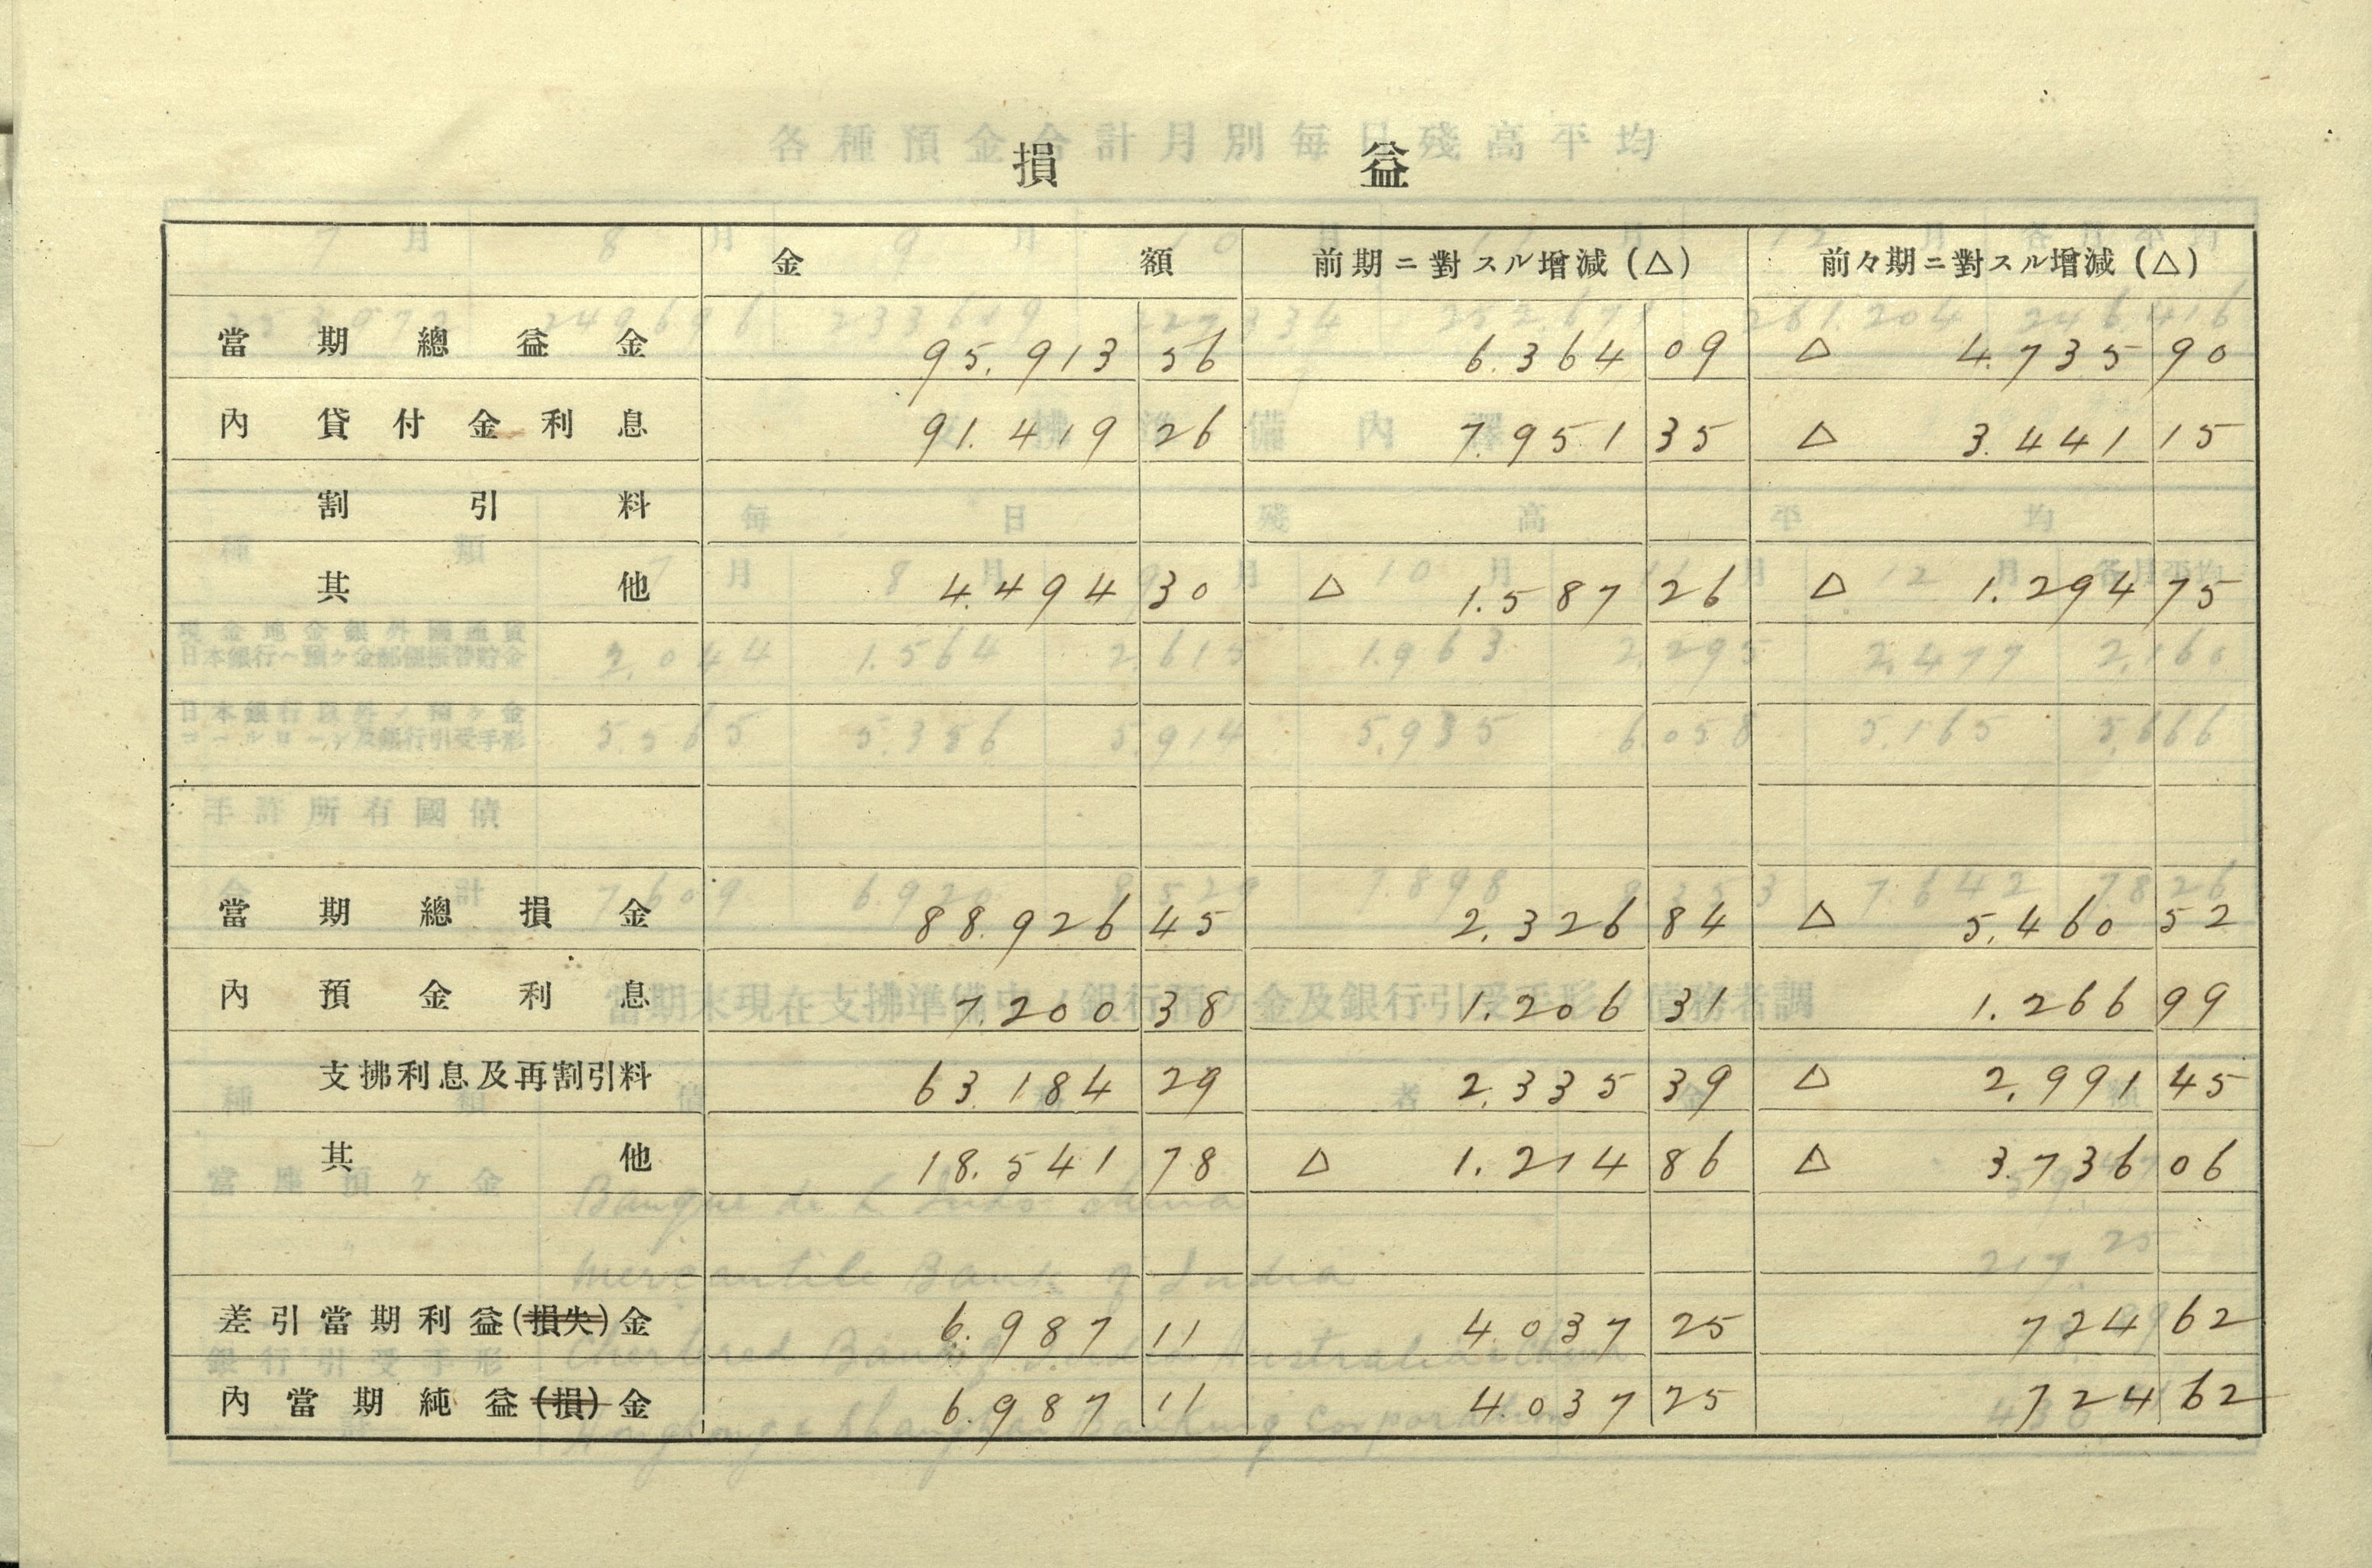 損益
金額 前期ニ對スル増減(△) 前々期ニ對スル増減(△)
當期總益金 95.913 56 6.364 09 △ 4.735 90
內 貸付金利息 91.419 26 7.951 35 △ 3.441 15
割引料
其他 4.494 30 △ 1.587 26 △ 1.294 75
當期總損金 88.926 45 2.326 84 △ 5.460 52
內 預金利息 7.200 38 1.206 31 1.266 99
支拂利息及再割引料 63.184 29 2.335 39 △ 2.991 45
其他 18.541 78 △ 1.214 86 △ 3.736 06
差引當期利益(損失)金 6.987 11 4.037 25 724 62
內當期純益(損)金 6.987 11 4.037 25 724 62